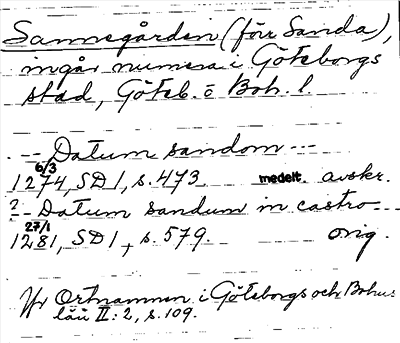 Sannegården (förr Sanda),
ingår numera i Göteborgs
stad, Göteb. o Boh. l.
-- Datum sandom --
6/3
1274, SD 1, s. 473 medelt. avskr.
? -- Datum sandum in castro --
27/1
1281, SD 1, s. 579. orig.
Jfr Ortnamnen i Göteborgs och Bohus
län II: 2, s. 109.